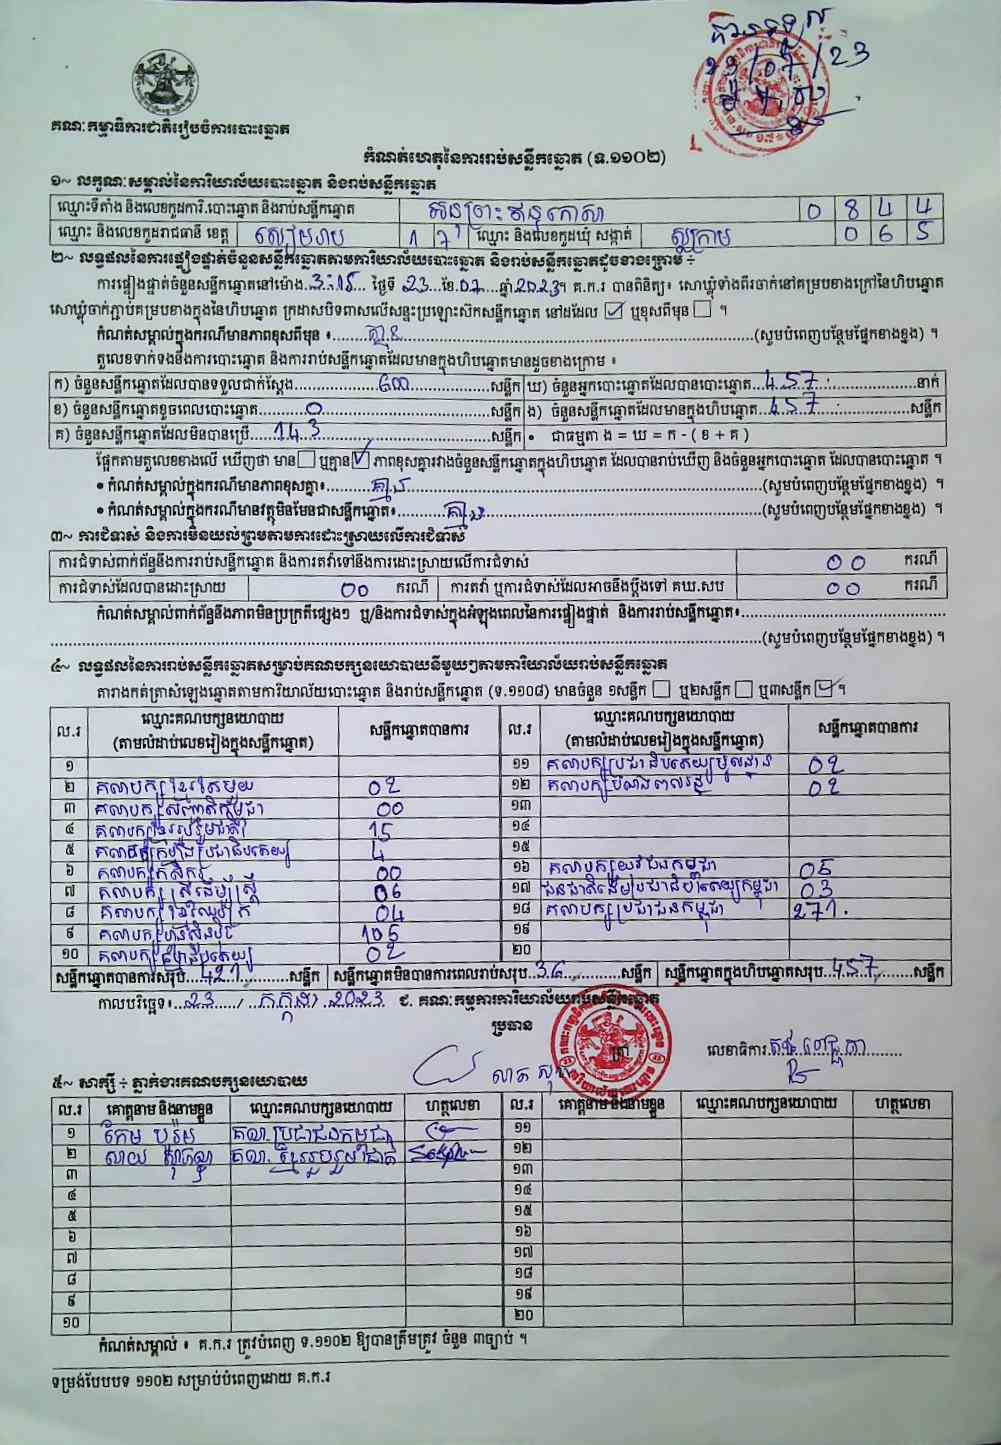 គណៈកម្មាធិការជាតិរៀបចំការបោះឆ្នោត
23/07/23
កំណត់ហេតុនៃការរាប់សន្លឹកឆ្នោត (ទ.១១០២)
១~ លក្ខណៈសម្គាល់នៃការិយាល័យបោះឆ្នោត និងរាប់សន្លឹកឆ្នោត
ឈ្មោះទីតាំង និងលេខកូដការិ.បោះឆ្នោត និងរាប់សន្លឹកឆ្នោត 0 8 4 4
ឈ្មោះ និងលេខកូដរាជធានី ខេត្ត សៀមរាប 1 7 ឈ្មោះ និងលេខកូដឃុំ សង្កាត់ ស្លក្រាម 0 6 5
២~ លទ្ធផលនៃការផ្ទៀងផ្ទាត់ចំនួនសន្លឹកឆ្នោតតាមការិយាល័យបោះឆ្នោត និងរាប់សន្លឹកឆ្នោតដូចខាងក្រោម ៖
ការផ្ទៀងផ្ទាត់ចំនួនសន្លឹកឆ្នោតនៅម៉ោង 3:15 ថ្ងៃទី 23 ខែ 07 ឆ្នាំ 2023។ គ.ក.រ បានពិនិត្យ៖ សោឃ្លុំទាំងពីរចាក់នៅគម្របខាងក្រៅនៃហិបឆ្នោត
សោឃ្លុំចាក់ភ្ជាប់គម្របខាងក្នុងនៃហិបឆ្នោត ក្រដាសបិទពាសលើសន្ទះប្រឡោះស៊កសន្លឹកឆ្នោត នៅដដែល ☑ ឬខុសពីមុន ☐ ។
កំណត់សម្គាល់ក្នុងករណីមានភាពខុសពីមុន ៖ គ្មាន (សូមបំពេញបន្ថែមផ្នែកខាងខ្នង) ។
តួលេខទាក់ទងនឹងការបោះឆ្នោត និងការរាប់សន្លឹកឆ្នោតដែលមានក្នុងហិបឆ្នោតមានដូចខាងក្រោម ៖
ក) ចំនួនសន្លឹកឆ្នោតដែលបានទទួលជាក់ស្តែង 600 សន្លឹក ឃ) ចំនួនអ្នកបោះឆ្នោតដែលបានបោះឆ្នោត 457 នាក់
ខ) ចំនួនសន្លឹកឆ្នោតខូចពេលបោះឆ្នោត 0 សន្លឹក ង) ចំនួនសន្លឹកឆ្នោតដែលមានក្នុងហិបឆ្នោត 457 សន្លឹក
គ) ចំនួនសន្លឹកឆ្នោតដែលមិនបានប្រើ 143 សន្លឹក • ជាធម្មតា ង = ឃ = ក - ( ខ + គ )
ផ្អែកតាមតួលេខខាងលើ ឃើញថា មាន ☐ ឬគ្មាន ☑ ភាពខុសគ្នារវាងចំនួនសន្លឹកឆ្នោតក្នុងហិបឆ្នោត ដែលបានរាប់ឃើញ និងចំនួនអ្នកបោះឆ្នោត ដែលបានបោះឆ្នោត ។
• កំណត់សម្គាល់ក្នុងករណីមានភាពខុសគ្នា៖ គ្មាន (សូមបំពេញបន្ថែមផ្នែកខាងខ្នង) ។
• កំណត់សម្គាល់ក្នុងករណីមានវត្ថុមិនមែនជាសន្លឹកឆ្នោត៖ គ្មាន (សូមបំពេញបន្ថែមផ្នែកខាងខ្នង) ។
៣~ ការជំទាស់ និងការមិនយល់ព្រមតាមការដោះស្រាយលើការជំទាស់
ការជំទាស់ពាក់ព័ន្ធនឹងការរាប់សន្លឹកឆ្នោត និងការតវ៉ាទៅនឹងការដោះស្រាយលើការជំទាស់ 00 ករណី
ការជំទាស់ដែលបានដោះស្រាយ 00 ករណី ការតវ៉ា ឬការជំទាស់ដែលអាចនឹងប្តឹងទៅ គឃ.សប 00 ករណី
កំណត់សម្គាល់ពាក់ព័ន្ធនឹងភាពមិនប្រក្រតីផ្សេងៗ ឬ/និងការជំទាស់ក្នុងអំឡុងពេលនៃការផ្ទៀងផ្ទាត់ និងការរាប់សន្លឹកឆ្នោត៖
(សូមបំពេញបន្ថែមផ្នែកខាងខ្នង) ។
៤~ លទ្ធផលនៃការរាប់សន្លឹកឆ្នោតសម្រាប់គណបក្សនយោបាយនីមួយៗតាមការិយាល័យរាប់សន្លឹកឆ្នោត
តារាងកត់ត្រាសំឡេងឆ្នោតតាមការិយាល័យបោះឆ្នោត និងរាប់សន្លឹកឆ្នោត (ទ.១១០៨) មានចំនួន ១សន្លឹក ☐ ឬ២សន្លឹក ☐ ឬ៣សន្លឹក ☑ ។
ល.រ ឈ្មោះគណបក្សនយោបាយ (តាមលំដាប់លេខរៀងក្នុងសន្លឹកឆ្នោត) សន្លឹកឆ្នោតបានការ ល.រ ឈ្មោះគណបក្សនយោបាយ (តាមលំដាប់លេខរៀងក្នុងសន្លឹកឆ្នោត) សន្លឹកឆ្នោតបានការ
១ ១១ គណបក្សប្រជាធិបតេយ្យមូលដ្ឋាន 02
២ គណបក្សខ្មែរតែមួយ 02 ១២ គណបក្សបំណងពលរដ្ឋ 02
៣ គណបក្សសញ្ជាតិកម្ពុជា 00 ១៣
៤ គណបក្សខ្មែររួបរួមជាតិ 15 ១៤
៥ គណបក្សសំបុកឃ្មុំប្រជាធិបតេយ្យ 4 ១៥
៦ គណបក្សកសិករ 00 ១៦ គណបក្សយុវជនកម្ពុជា 05
៧ គណបក្សស្ត្រីដើម្បីស្ត្រី 06 ១៧ ជនជាតិដើមប្រជាធិបតេយ្យកម្ពុជា 03
៨ 04 ១៨ គណបក្សប្រជាជនកម្ពុជា 271
៩ គណបក្សហ៊្វុនស៊ិនប៉ិច 105 ១៩
១០ គណបក្សធម្មាធិបតេយ្យ 02 ២០
សន្លឹកឆ្នោតបានការសរុប 421 សន្លឹក សន្លឹកឆ្នោតមិនបានការពេលរាប់សរុប 36 សន្លឹក សន្លឹកឆ្នោតក្នុងហិបឆ្នោតសរុប 457 សន្លឹក
កាលបរិច្ឆេទ៖ 23 / កក្កដា 2023 ជ. គណៈកម្មការការិយាល័យរាប់សន្លឹកឆ្នោត
ប្រធាន
លេខាធិការ
៥~ សាក្សី ÷ ភ្នាក់ងារគណបក្សនយោបាយ
ល.រ គោត្តនាម និងនាមខ្លួន ឈ្មោះគណបក្សនយោបាយ ហត្ថលេខា ល.រ គោត្តនាម និងនាមខ្លួន ឈ្មោះគណបក្សនយោបាយ ហត្ថលេខា
១ គណ.ប្រជាជនកម្ពុជា ១១
២ គណ. ខ្មែររួបរួមជាតិ ១២
៣ ១៣
៤ ១៤
៥ ១៥
៦ ១៦
៧ ១៧
៨ ១៨
៩ ១៩
១០ ២០
កំណត់សម្គាល់ ៖ គ.ក.រ ត្រូវបំពេញ ទ.១១០២ ឱ្យបានត្រឹមត្រូវ ចំនួន ៣ច្បាប់ ។
ទម្រង់បែបបទ ១១០២ សម្រាប់បំពេញដោយ គ.ក.រ